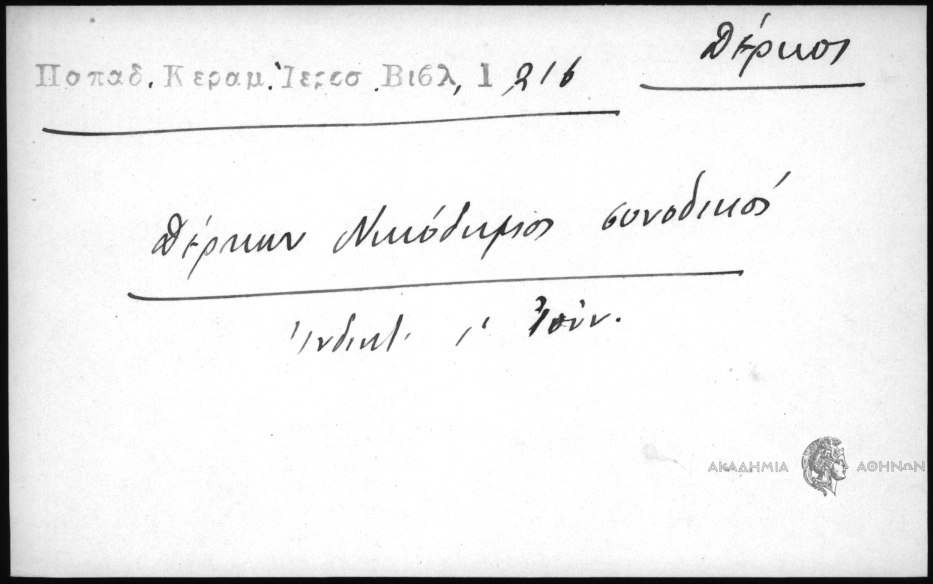 Δέρκος
Παπαδ. Κεραμ. Ἱεροσ. Βιβλ, 1 216
Δέρκων Νικόδημος συνοδικός
Ἰνδικτ. ι' Ἰούν.
ΑΚΑΔΗΜΙΑ ΑΘΗΝΩΝ